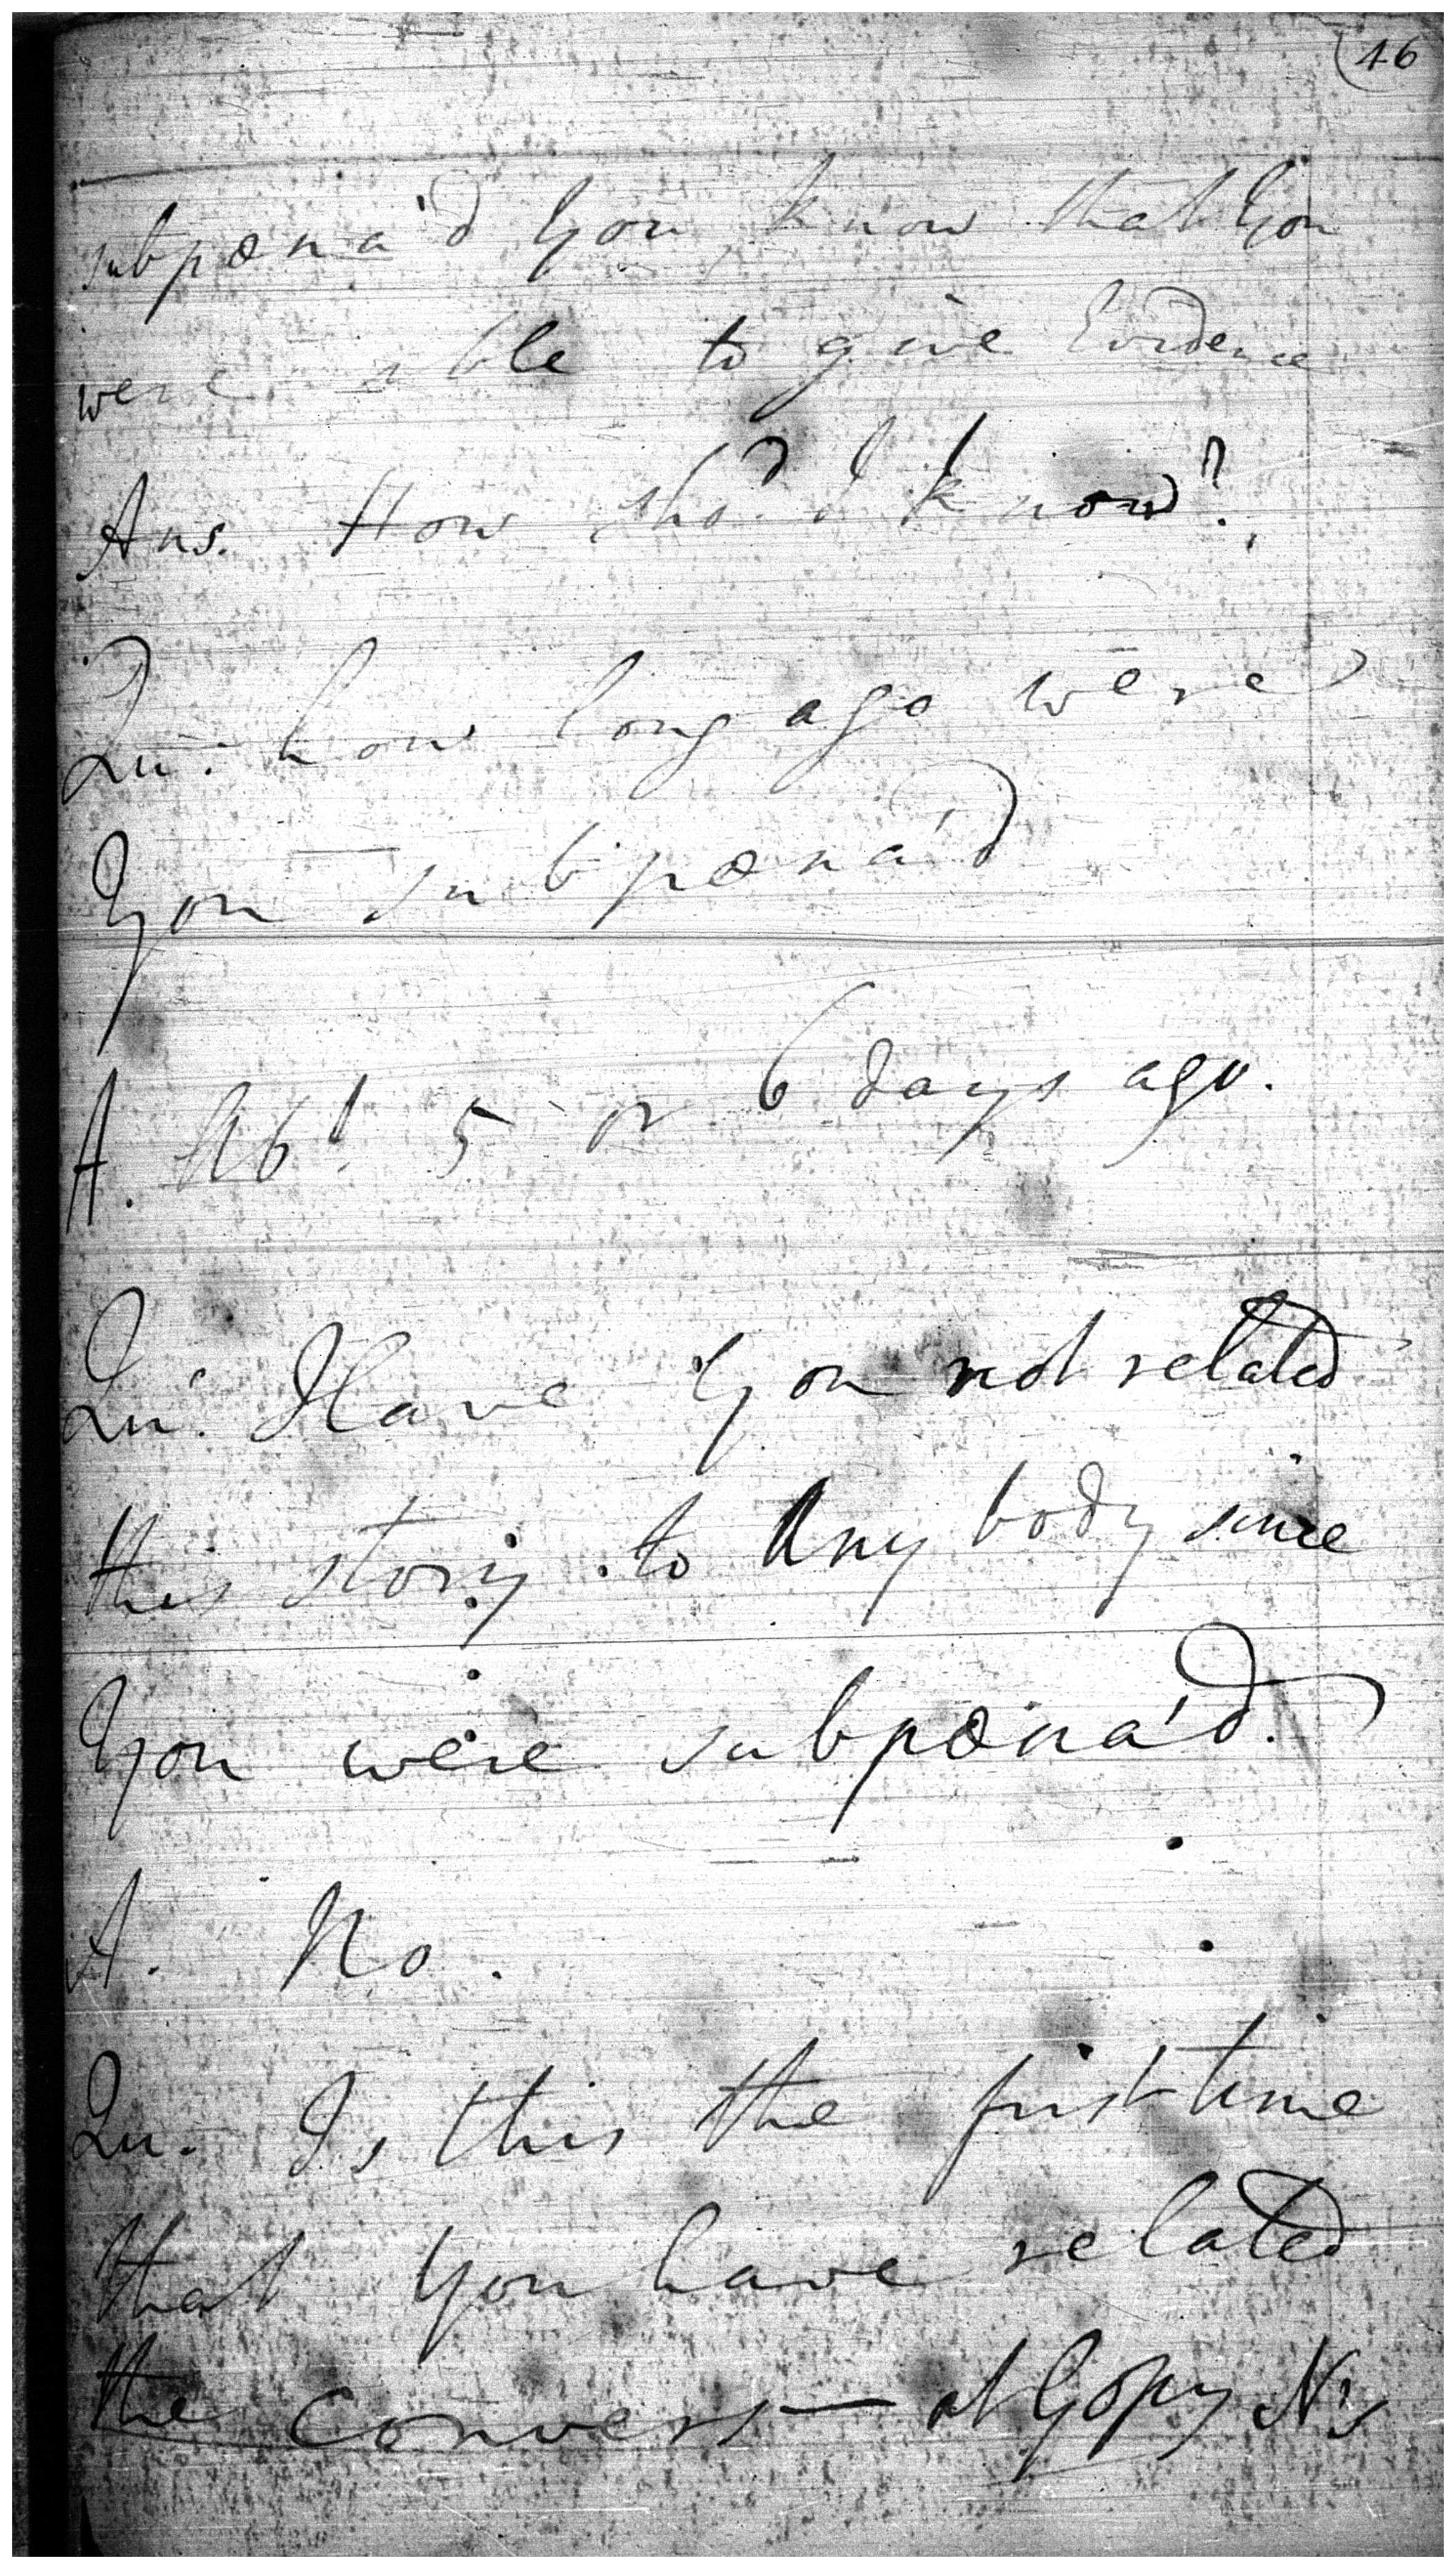 46
subpœna'd You know that You
were able to give Evidence
Ans. How sho.d I know?
Qu: how long ago were
You subpœna'd
A. Ab.t 5 or 6 days ago.
Qu: Have You not related
this story to Any body since
You were subpœna'd.
A. No.
Qu. Is this the first time
that You have related
the convers— at Gopy N's